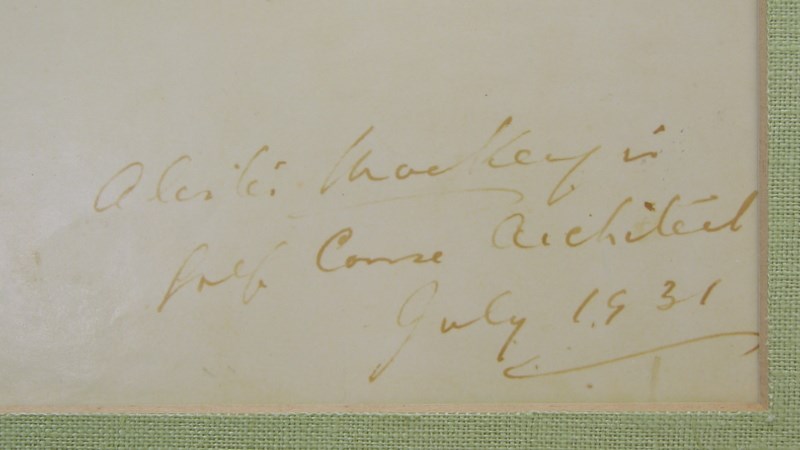 Alister Mackenzie
Golf Course Architect
July 1931